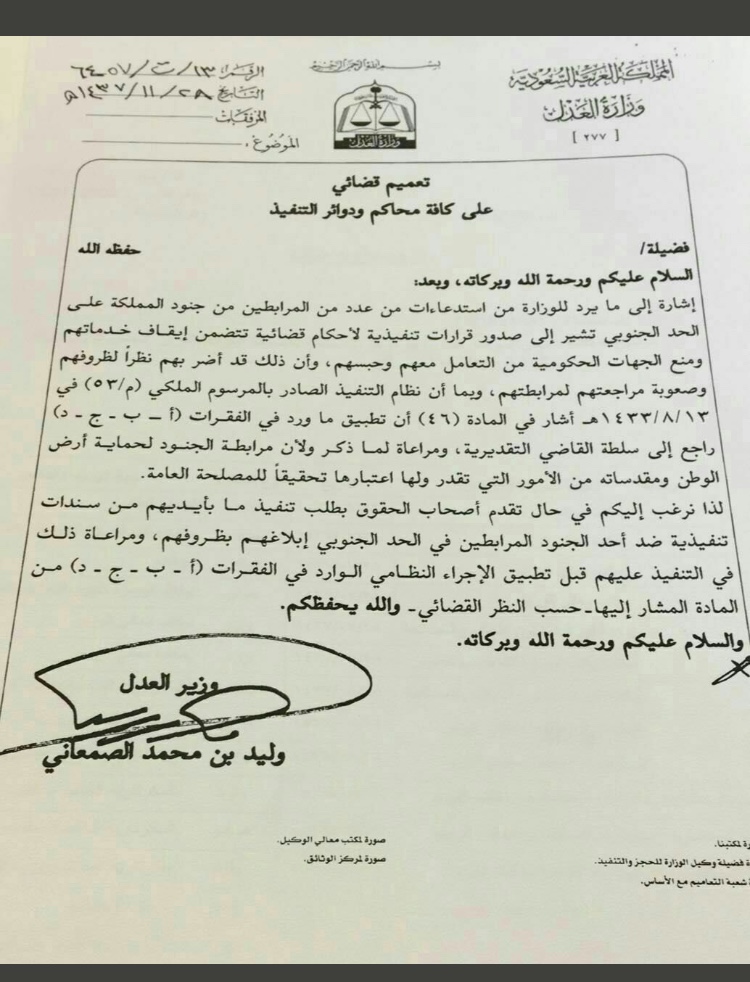 المملكة العربية السعودية
وزارة العدل
[ ٢٧٧ ]
بسم الله الرحمن الرحيم
وزارة العدل
الرقم: ١٣/ت/٦٤٠٧
التاريخ ١٤٣٧/١١/٢٨هـ
المرفقات
الموضوع:
تعميم قضائي
على كافة محاكم ودوائر التنفيذ
فضيلة/ حفظه الله
السلام عليكم ورحمة الله وبركاته، وبعد:
إشارة إلى ما يرد للوزارة من استدعاءات من عدد من المرابطين من جنود المملكة على
الحد الجنوبي تشير إلى صدور قرارات تنفيذية لأحكام قضائية تتضمن إيقاف خدماتهم
ومنع الجهات الحكومية من التعامل معهم وحبسهم، وأن ذلك قد أضر بهم نظراً لظروفهم
وصعوبة مراجعتهم لمرابطتهم، وبما أن نظام التنفيذ الصادر بالمرسوم الملكي (م/٥٣) في
١٤٣٣/٨/١٣هـ أشار في المادة (٤٦) أن تطبيق ما ورد في الفقرات (أ - ب - ج - د)
راجع إلى سلطة القاضي التقديرية، ومراعاة لما ذكر ولأن مرابطة الجنود لحماية أرض
الوطن ومقدساته من الأمور التي تقدر ولها اعتبارها تحقيقاً للمصلحة العامة.
لذا نرغب إليكم في حال تقدم أصحاب الحقوق بطلب تنفيذ ما بأيديهم من سندات
تنفيذية ضد أحد الجنود المرابطين في الحد الجنوبي إبلاغهم بظروفهم، ومراعاة ذلك
في التنفيذ عليهم قبل تطبيق الإجراء النظامي الوارد في الفقرات (أ - ب - ج - د) من
المادة المشار إليها- حسب النظر القضائي- والله يحفظكم.
والسلام عليكم ورحمة الله وبركاته.
وزير العدل
وليد بن محمد الصمعاني
رة لمكتبنا.
ة فضيلة وكيل الوزارة للحجز والتنفيذ.
ة شعبة التعاميم مع الأساس.
صورة لمكتب معالي الوكيل.
صورة لمركز الوثائق.